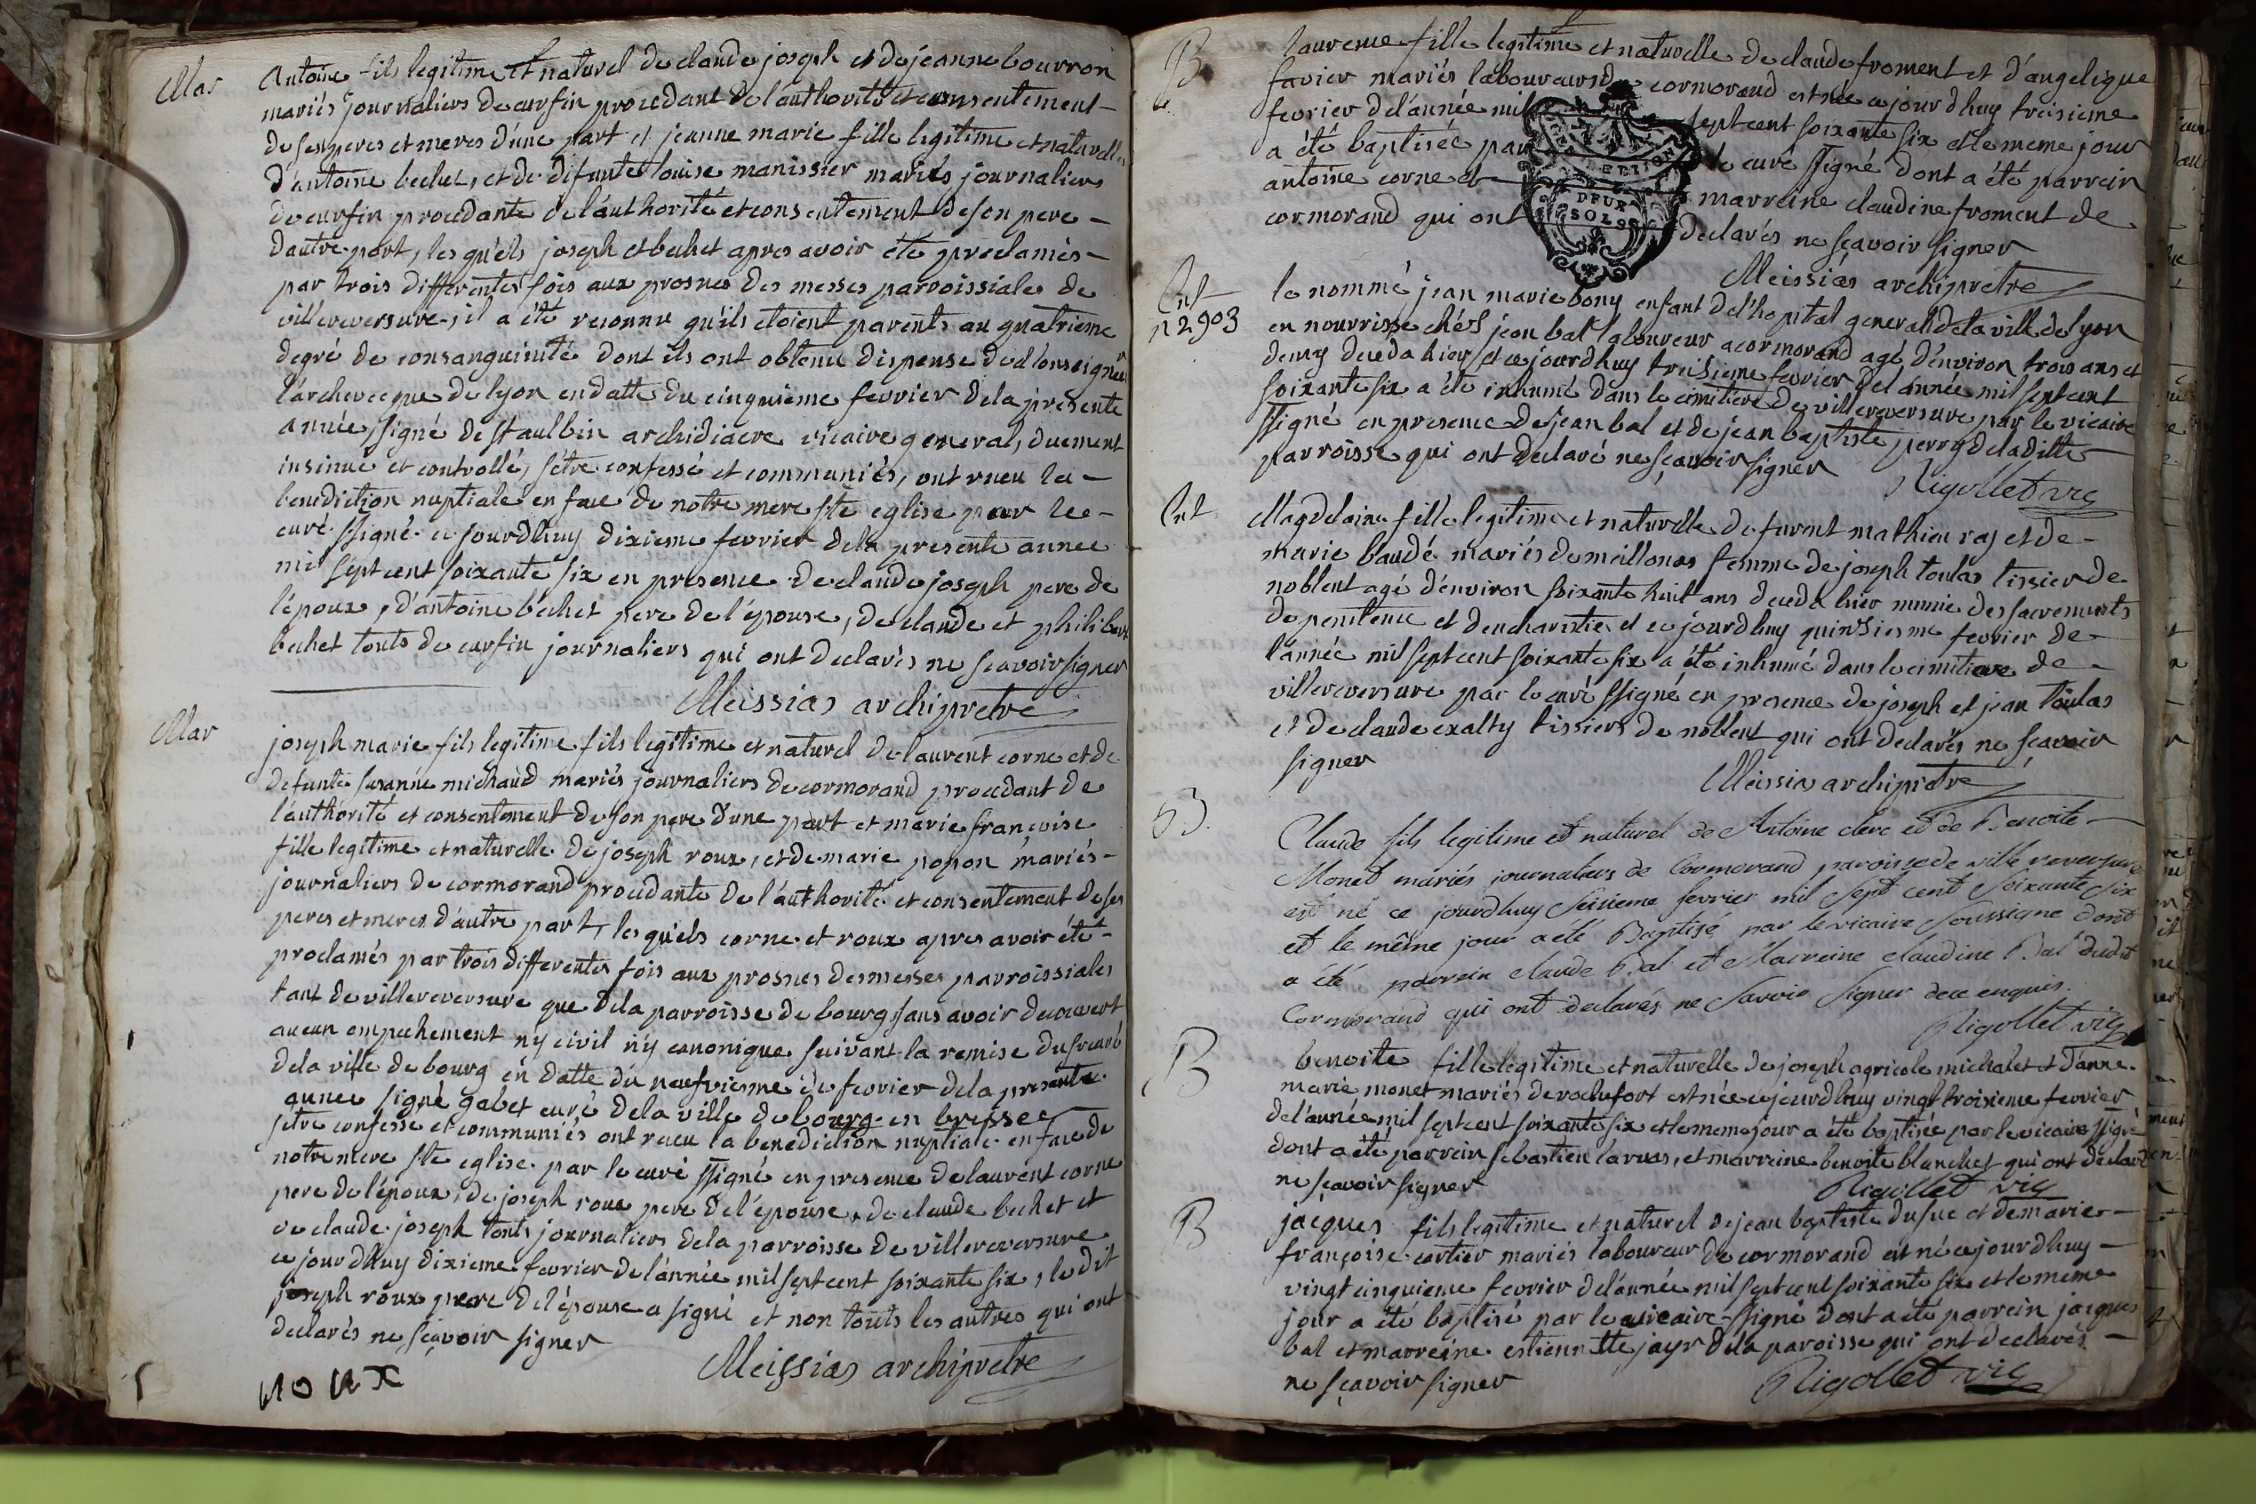 Mar
Antoine fils legitime et naturel de claude joseph et de jeanne bourron
mariés journaliers de curfin procedant de l'authorité et consentement
de ses peres et meres d'une part et jeanne marie fille legitime et naturelle
d'antoine bechet, et de defunte louise manissier mariés journaliers
de curfin procedante de l'authorité et consentement de son pere
d'autre part, les quels joseph et bechet apres avoir été proclamés
par trois differentes fois aux prosnes des messes parroissiales de
villereversure, il a été reconnu qu'ils etoient parents au quatrieme
degré de consanguinité dont ils ont obtenu dispense de Monseigneur
l'archeveque de lyon en datte du cinquieme fevrier de la presente
année, signé de St aulbin archidiacre vicaire general, duement
insinué et controllé, s'être confessé et communiés, ont receu la
benediction nuptiale en face de notre mere ste eglise par le
curé ssigné ce jourdhuy dixieme fevrier de la presente année
mil sept cent soixante six en presence de claude joseph pere de
l'époux, d'antoine bechet pere de l'épouse, de claude et philibert
bechet touts de curfin journaliers qui ont declarés ne scavoir signer
Meissias archiprêtre
Mar
joseph marie fils legitime fils legitime et naturel de laurent corne et de
defunte susanne michaud mariés journaliers de cormorand procedant de
l'authorité et consentement de son pere d'une part et marie françoise
fille legitime et naturelle de joseph roux, et de marie popon mariés
journaliers de cormorand procedante de l'authorité et consentement de ses
peres et meres d'autre part, les quels corne et roux apres avoir été
proclamés par trois differentes fois aux prosnes des messes parroissiales
tant de villereversure que de la parroisse de bourg sans avoir decouvert
aucun empechement ny civil ny canonique suivant la remise du sr curé
de la ville de bourg en datte du neufvieme de fevrier de la presente
année signé gabet curé de la ville de bourg en bresse
s'être confessé et communiés ont receu la benediction nuptiale en face de
notre mere ste eglise par le curé ssigné en presence de laurent corne
pere de l'époux, de joseph roux pere de l'épouse, de claude bechet et
de claude joseph touts journaliers de la parroisse de villereversure
ce jourdhuy dixieme fevrier de l'année mil sept cent soixante six, le dit
joseph roux pere de l'épouse a signé et non touts les autres qui ont
declarés ne sçavoir signer
Meissias archiprêtre
roux
B
laurence fille legitime et naturelle de claude froment et d'angelique
favier mariés laboureurs de cormorand est née ce jourdhuy treisieme
fevrier de l'année mil sept cent soixante six et le meme jour
a été baptisée par le curé ssigné dont a été parrein
antoine corne et marreine claudine froment de
cormorand qui ont declarés ne sçavoir signer
DEUX
SOLS
Meissias archiprêtre
Ent
n 2903
le nommé jean marie bony enfant de l'hopital general de la ville de lyon
en nourrisse chés jean bal laboureur a cormorand agé d'environ trois ans et
demy deceda hier et ce jourdhuy treisieme fevrier de l'année mil sept cent
soixante six a été inhumé dans le cimitiere de villereversure par le vicaire
ssigné en presence de jean bal et de jean baptiste perry de la ditte
parroisse qui ont declaré ne sçavoir signer
Rigollet vic
Ent
Magdelaine fille legitime et naturelle de furent mathieu ray et de
marie baudé mariés de meillonas femme de joseph toulas tissier de
noblent agé d'environ soixante huit ans deceda hier munie des sacrements
de penitence et d'eucharistie et ce jourdhuy quinsieme fevrier de
l'année mil sept cent soixante six a été inhumé dans le cimitiere de
villereversure par le curé ssigné en presence de joseph et jean toulas
et de claude exalty tissiers de noblent qui ont declarés ne sçavoir
signer
Meissias archiprêtre
B
Claude fils legitime et naturel de Antoine clerc et de Benoite
Monet mariés journaliers de Cormorand, paroisse de villereversure
est né ce jourdhuy seisieme fevrier mil sept cent soixante six
et le même jour a été Baptisé par le vicaire soussigné dont
a été parrein claude Bal et Marreine claudine Bal dudit
Cormorand qui ont declarés ne savoir signer de ce enquis.
Rigollet vic
B
benoite fille legitime et naturelle de joseph agricole michalet et d'anne
marie monet mariés de rochefort est née ce jourdhuy vingt troisieme fevrier
de l'année mil sept cent soixante six et le meme jour a été baptisée par le vicaire ssigné
dont a été parrein sebastien carnas, et marreine benoite blanchet qui ont declaré
ne sçavoir signer
Rigollet vic
B
jacques fils legitime et naturel de jean baptiste dusuc et de marie
françoise cartier mariés laboureur de cormorand est né ce jourdhuy
vingt cinquieme fevrier de l'année mil sept cent soixante six et le meme
jour a été baptisé par le vicaire ssigné dont a été parrein jacques
bal et marreine estiennette jayr de la paroisse qui ont declarés
ne sçavoir signer
Rigollet vic